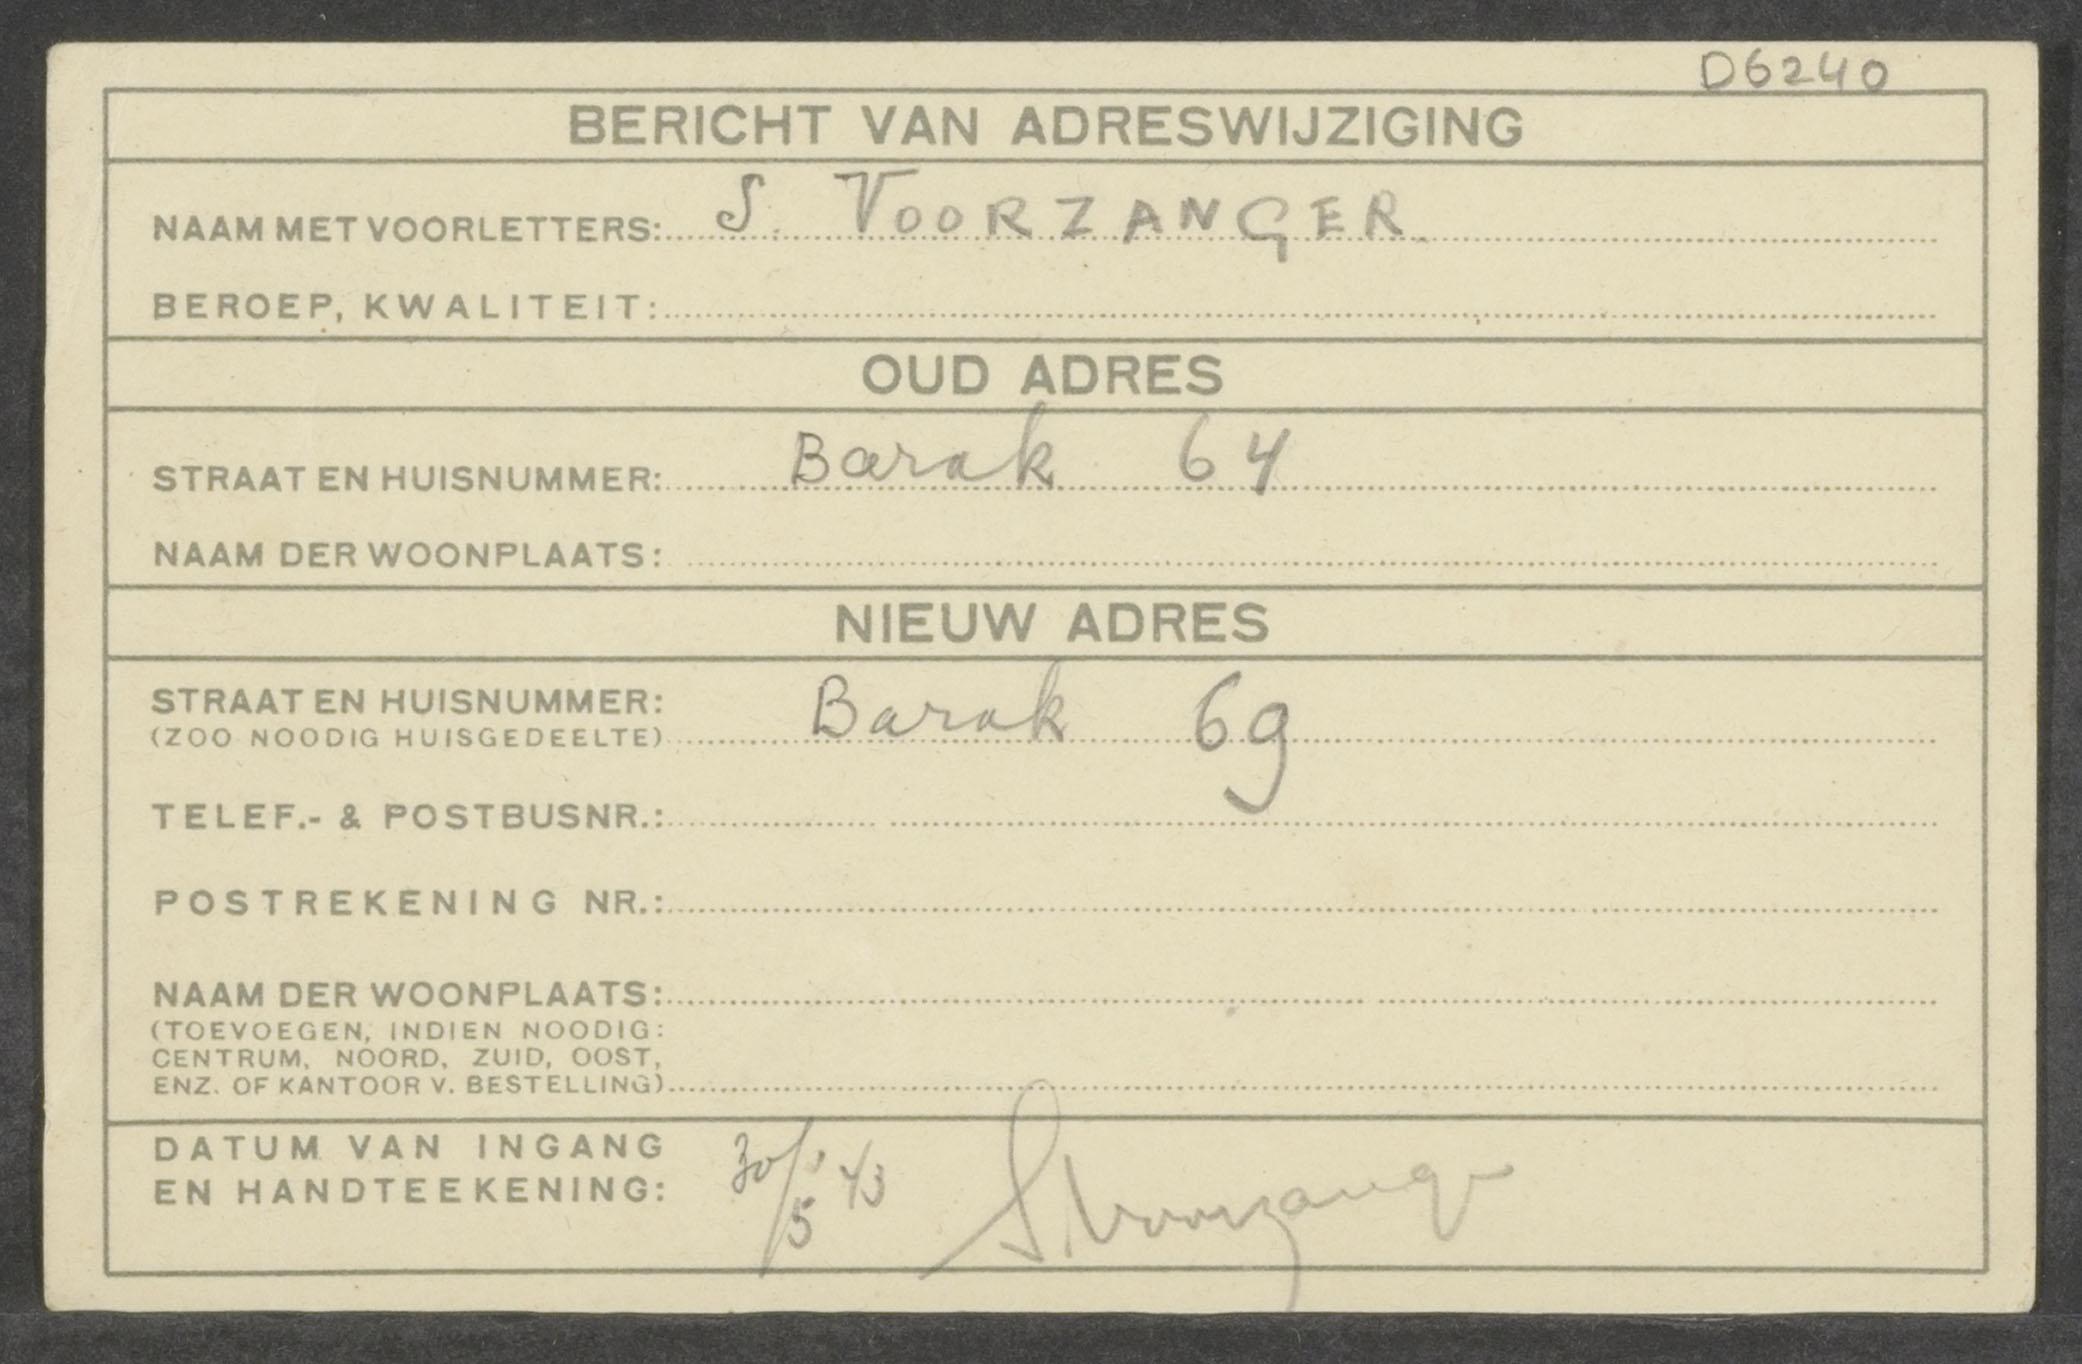 D6240
BERICHT VAN ADRESWIJZIGING
NAAM MET VOORLETTERS: S. VOORZANGER
BEROEP, KWALITEIT:
OUD ADRES
STRAAT EN HUISNUMMER: Barak 64
NAAM DER WOONPLAATS:
NIEUW ADRES
STRAAT EN HUISNUMMER: Barak 69
(ZOO NOODIG HUISGEDEELTE)
TELEF.- & POSTBUSNR.:
POSTREKENING NR.:
NAAM DER WOONPLAATS:
(TOEVOEGEN, INDIEN NOODIG:
CENTRUM, NOORD, ZUID, OOST,
ENZ. OF KANTOOR V. BESTELLING)
DATUM VAN INGANG
EN HANDTEEKENING: 30/5 '43 S. Voorzanger